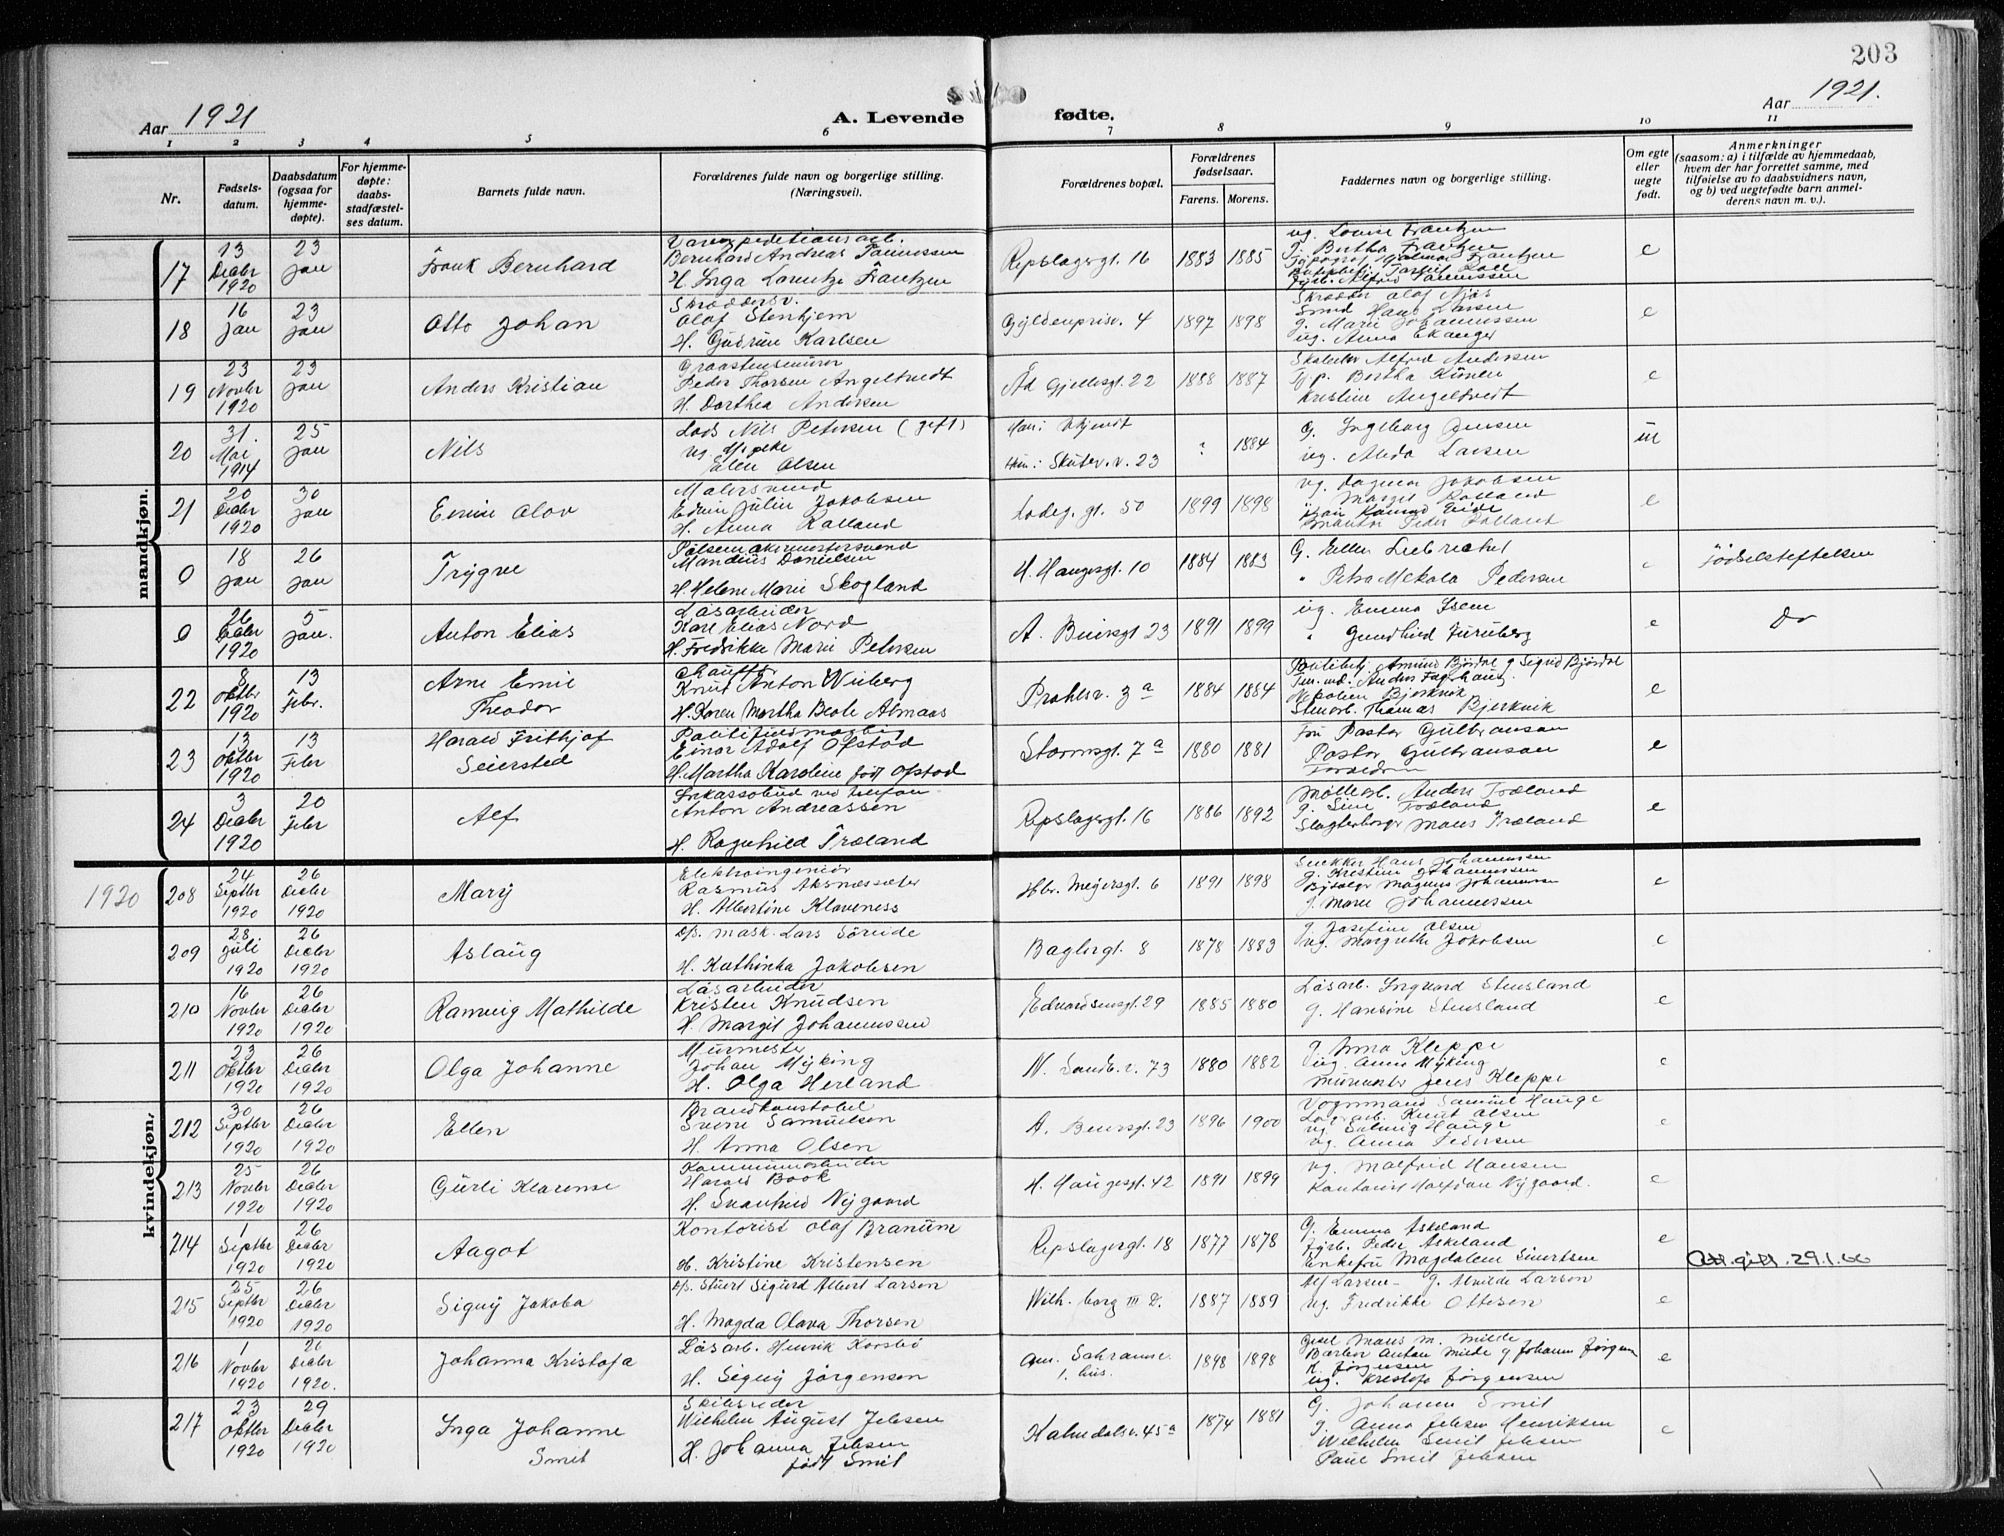 203
Aar 1921
A. Levende fødte.
Aar 1921.
1 2 3 4 5 6 7 8 9 10 11
Nr.
Fødsels-
datum.
Daabsdatum
(ogsaa for
hjemme-
døpte).
For hjemme-
døpte:
daabs-
stadfæstel-
ses datum.
Barnets fulde navn.
Forældrenes fulde navn og borgerlige stilling.
(Næringsvei).
Forældrenes bopæl.
Forældrenes
fødselsaar.
Farens. Morens.
Faddernes navn og borgerlige stilling.
Om egte
eller
uegte
født.
Anmerkninger
(saasom: a) i tilfælde av hjemmedaab,
hvem der har forrettet samme, med
tilføielse av to daabsvidners navn,
og b) ved uegtefødte barn anmel-
derens navn m. v.).
mandkjøn.
17
13
Decbr
1920
23
Jan
Frank Bernhard
Bernhard Andreas
H. Inga Lorentze Frantzen
Repslagergt. 16
1883
1885
ug. Louise Frantzen
g. Bertha Frantzen
e
18
16
Jan
23
Jan
Otto Johan
Olaf Stenhjem
H. Gudrun Karlsen
Gyldenprisv. 4
1897
1898
Skrædder Olaf
Smed Hans Larsen
g. Marie Johannessen
ug. Anna Ekanger
e
19
23
Novbr
1920
23
Jan
Anders Kristian
Graastensmurer
Peder Thorsen Angeltvedt
H. Dorthea Andersen
Ad Gjellesgt. 22
1888
1887
Alfred Andersen
Bertha
Kristine Angeltvedt
e
20
31.
Mai
1914
25
Jan
Nils
Lods Nils Petersen (gift)
ug.
Elen Olsen
Han: Ukjendt
Hun: Skutev. v. 23
?
1884
g. Ingeborg Jensen
ug. Alida Larsen
u
21
20
Decbr
1920
30
Jan
Olav
Malersvend
Edvin Julin Jakobsen
H. Anna Kalland
Lodeg. gt. 50
1899
1898
ug. Dagmar Jakobsen
Margit Kalland
Peder Kalland
e
0
18
Jan
26
Jan
Trygve
Pølsemakermestersvend
Mandius Danielsen
H. Helene Marie Skogland
H. Haugesgt. 10
1884
1883
g. Ellen
" Petra Mekala Pedersen
e
Fødselsstiftelsen
0
26
Decbr
1920
5
Jan.
Anton Elias
Løsarbeider
Karl Elias Nord
H. Fredrikke Marie Petersen
A. Beiersgt 23
1891
1899
ug. Emma Isene
e
Do
22
8
Oktbr
1920
13
Febr.
Arne Emil
Theodor
Chauffør
Knut Anton Wiberg
H. Karen Martha Beate Almaas
Prahlsv. 3 a
1884
1884
Amund Bjørdal g Sigrid Bjørdal
Stenarb. Thomas Bjerkvik
e
23
13
Oktbr
1920
13
Febr
Harald Frithjof
Seiersted
Politifuldmægtig
Einar Adolf Ofstad
H. Martha Karoline født Ofstad
Stormsgt. 7 a
1880
1881
Fru Pastor Gulbranson
Pastor Gulbranson
Forældrene
e
24
3
Decbr
1920
20
Febr
Alf
Inkassobud ved telefon
Anton Andreassen
H. Ragnhild Træland
Repslagergt. 16
1886
1892
Møllerarb. Anders Træland
g. Sine Træland
Slagterborger Mons Træland
e
kvindekjøn.
1920
208
24
Septbr
1920
26
Decbr
1920
Mary
Elektroingeniør
Rasmus Aksnessæter
H. Albertine Klaveness
Hbr. Meyersgt. 6
1891
1898
Snekker Hans Johannessen
g. Kristine Johannessen
Magnus Johannessen
g. Marie Johannessen
e
209
28
Juli
1920
26
Decbr
1920
Aslaug
D/S. mask. Lars Søreide
H. Kathinka Jakobsen
Baglergt. 8
1878
1883
g. Josefine Olsen
ug. Margrethe Jakobsen
e
210
16
Novbr
1920
26
Decbr
1920
Ranveig Mathilde
Løsarbeider
Kristen Knudsen
H. Margit Johannessen
Edvardsensgt. 29
1885
1880
Løsarb. Ingvard Stensland
g. Hansine Stensland
e
211
23
Oktbr
1920
26
Decbr
1920
Olga Johanne
Murmester
Johan Myking
H. Olga Herland
N. Sandv. v. 73
1880
1882
g. Anna Kleppe
ug. Anna Myking
Murmester Jens Kleppe
e
212
30
Septbr
1920
26
Decbr
1920
Ellen
Brandkonstabel
Svein Samuelsen
H. Anna Olsen
A. Beiersgt. 23
1896
1900
Vognmand Samuel Hauge
Knut Olsen
ug. Solveig Hauge
ug. Anna Pedersen
e
213
25
Novbr
1920
26
Decbr
1920
Gurli Klarense
Kommunearbeider
Harald Book
H. Svanhild Nygaard
H. Haugesgt. 42
1891
1899
ug. Malfrid Hansen
Kontorist Halfdan Nygaard.
e
214
1
Septbr
1920
26
Decbr
1920
Aagot
Kontorist Olaf Branum
H. Kristine Kristensen
Repslagergt. 18
1877
1878
g. Emma Askeland
Fyrb. Peder Askeland
Enkefru Magdalene Sivertsen
e
Att. gitt. 29.1.66
215
25
Septbr
1920
26
Decbr
1920
Signy Jakoba
D/S. Stuert Sigurd Albert Larsen
H. Magda Olava Thorsen
Wilh. borg III D.
1887
1889
Alf Larsen - g. Alvilde Larson
ug. Fredrikke Ottesen
e
216
1
Novbr
1920
26
Decbr
1920.
Johanna Kristofa
Løsarb. Henrik Korsbø
H. Signy Jørgensen
Øm. Sahranne
1. hus.
1898
1898
Mons M. Milde
Barber Anton Milde g Johanne Jørgen
K. Jørgensen
ug. Kristofa Jørgensen
e
217
23
Oktbr
1920
29
Decbr
1920
Inga Johanne
Smit
Skibsreder
Wilhelm August Jebsen
H. Johanna Jebsen
født Smit
Kalvedalsv. 45 a
1874
1881
g. Johanne Smit
g. Anna Jebsen Henriksen
Wilhelm Smit Jebsen
Paul Smit Jebsen
e